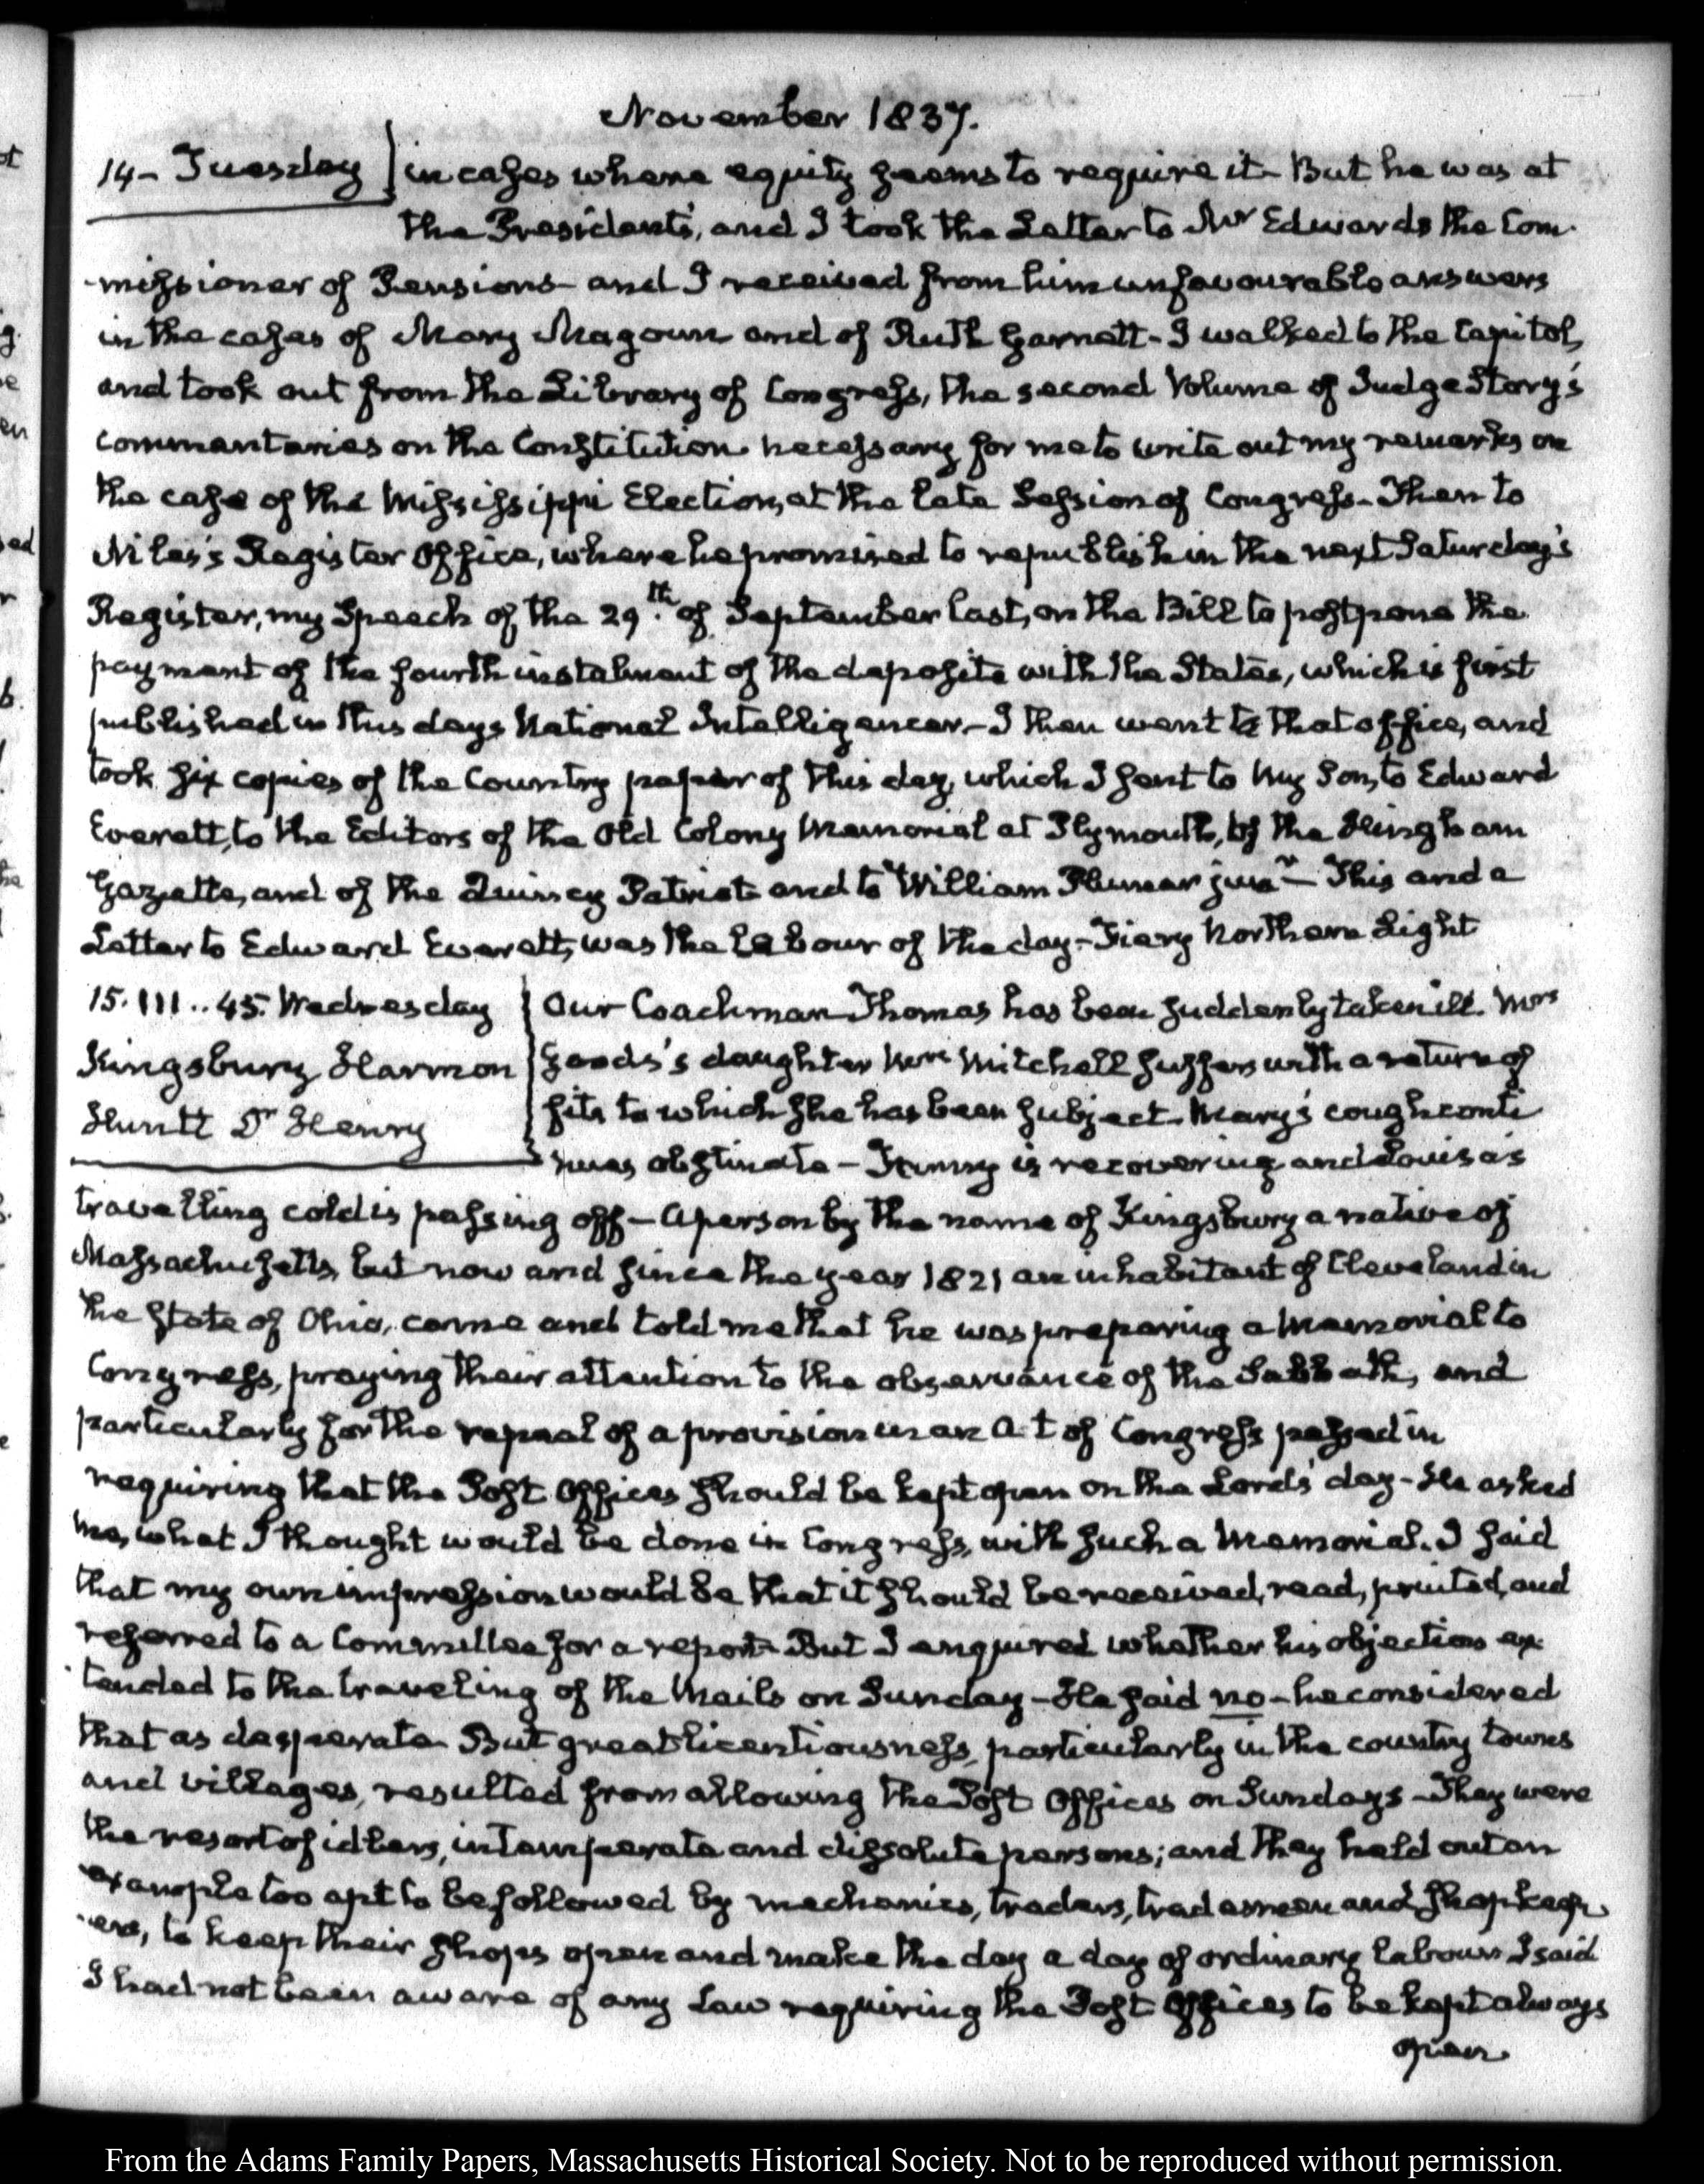 November 1837.
14 - Tuesday
in cases where equity seems to require it - But he was at
the President's, and I took the Letter to Mr Edwards the Com-
-missioner of Pensions - and I received from him unfavourable answers
in the cases of Mary Magoun and of Ruth Garnett - I walked to the Capitol,
and took out from the Library of Congress, the second Volume of Judge Story's
commentaries on the Constitution necessary for me to write out my remarks on
the case of the Mississippi Election, at the late Session of Congress - Then to
Niles's Register Office, where he promised to republish in the next Saturday's
Register, my Speech of the 29th of September last, on the Bill to postpone the
payment of the fourth instalment of the deposite with the States, which is first
published in this days National Intelligencer - I then went to that office, and
took six copies of the Country paper of this day, which I sent to my Son, to Edward
Everett, to the Editors of the Old Colony Memorial at Plymouth, of the Hingham
Gazette, and of the Quincy Patriot and to William Plumer junr - This and a
Letter to Edward Everett, was the labour of the day - Fiery Northern Light
15. III..45. Wednesday
Kingsbury Harmon
Huntt Dr Henry
Our Coachman Thomas has been suddenly taken ill. Mrs
Goods's daughter Mrs Mitchell suffers with a return of
fits to which she has been subject. Mary's cough conti
nues obstinate - Fanny is recovering and Louisa's
travelling cold is passing off - A person by the name of Kingsbury a native of
Massachusetts, but now and since the year 1821 an inhabitant of Cleveland in
the State of Ohio, came and told me that he was preparing a Memorial to
Congress, praying their attention to the observance of the Sabbath, and
particularly for the repeal of a provision in an Act of Congress passed in
requiring that the Post Offices should be kept open on the Lord's day - He asked
me, what I thought would be done in Congress, with such a Memorial. I said
that my own impression would be that it should be received, read, printed, and
referred to a Committee for a report - But I enquired whether his objections ex-
-tended to the traveling of the Mails on Sunday - He said no - he considered
that as desperate - But great licentiousness, particularly in the country towns
and villages, resulted from allowing the Post Offices on Sundays - They were
the resort of idlers, intemperate and dissolute persons; and they held out an
example too apt to be followed by mechanics, traders, tradesmen and shopkeep-
-ers, to keep their shops open and make the day a day of ordinary labour. I said
I had not been aware of any Law requiring the Post Offices to be kept always
open.
From the Adams Family Papers, Massachusetts Historical Society. Not to be reproduced without permission.